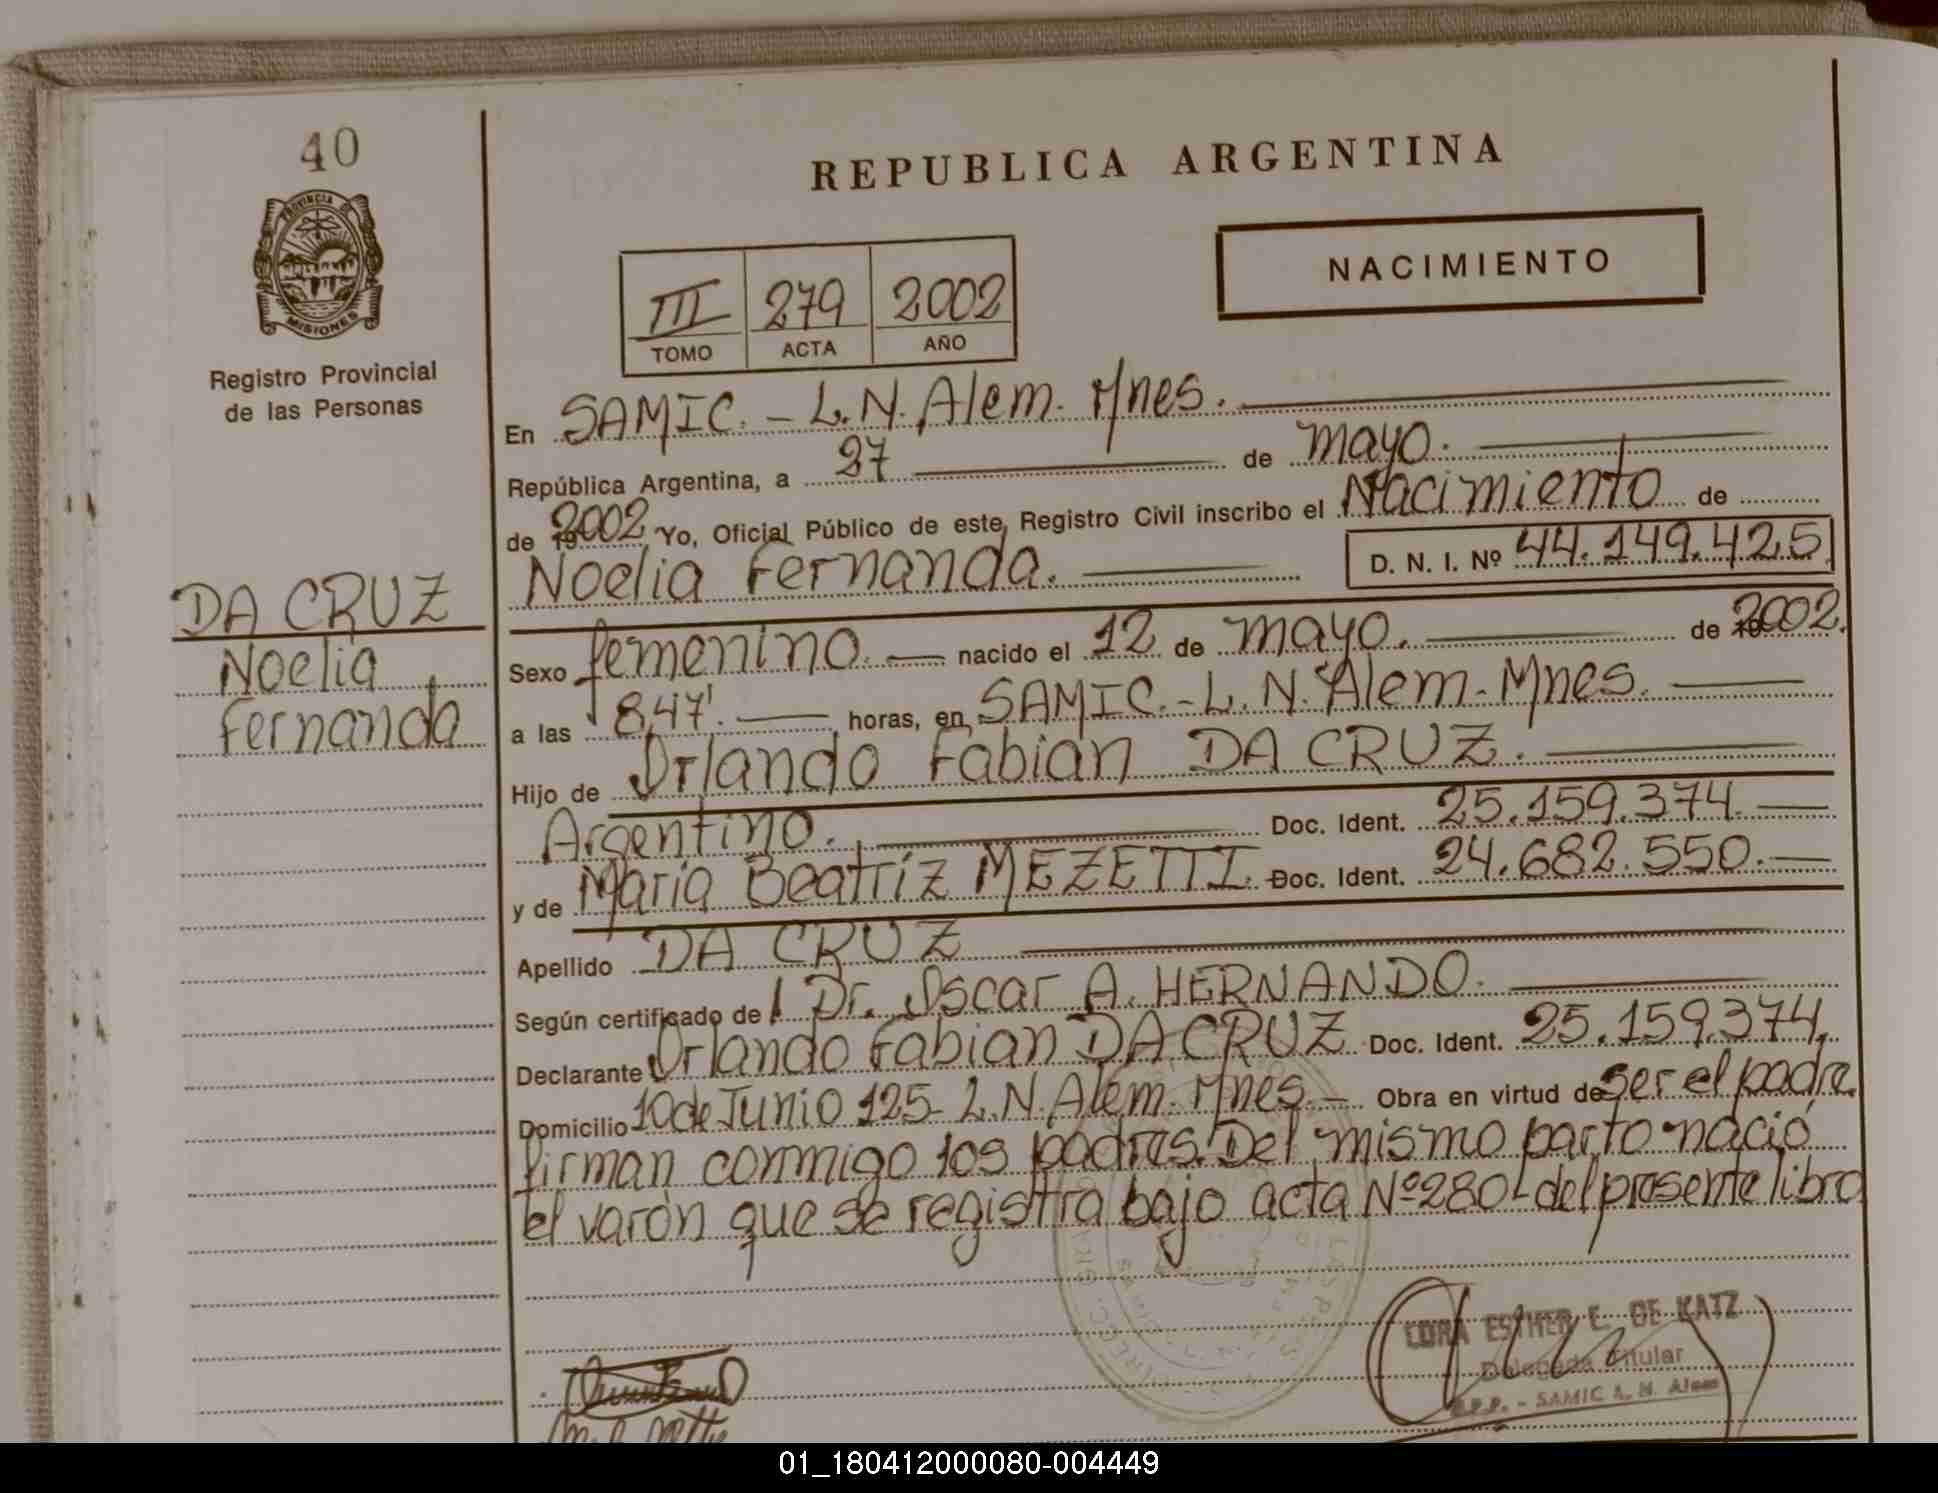 40
REPUBLICA ARGENTINA
PROVINCIA DE
MISIONES
NACIMIENTO
III 279 2002
TOMO ACTA AÑO
Registro Provincial
de las Personas
En SAMIC. - L. N. Alem. Mnes.
República Argentina, a 27 de mayo.
de 2002 Yo, Oficial Público de este Registro Civil inscribo el Nacimiento de
Noelia Fernanda. D. N. I. Nº 44.149.425
DA CRUZ
Noelia
Fernanda
Sexo femenino. nacido el 12 de mayo. de 2002.
a las 8,47'. horas, en SAMIC.-L. N. Alem.-Mnes.
Hijo de Orlando Fabian DA CRUZ.
Argentino. Doc. Ident. 25.159.374.
y de Maria Beatriz MEZETTI. Doc. Ident. 24.682.550.
Apellido DA CRUZ
Según certificado del Dr. Oscar A. HERNANDO.
Declarante Orlando Fabian DA CRUZ Doc. Ident. 25.159.374.
Domicilio 10 de Junio 125- L. N. Alem. Mnes. - Obra en virtud de ser el padre
firman conmigo los padres. Del mismo parto nació
el varón que se registra bajo acta Nº 280- del presente libro
ESTHER E. DE KATZ
Delegada Titular
R.P.P. - SAMIC L. N. Alem
01_180412000080-004449